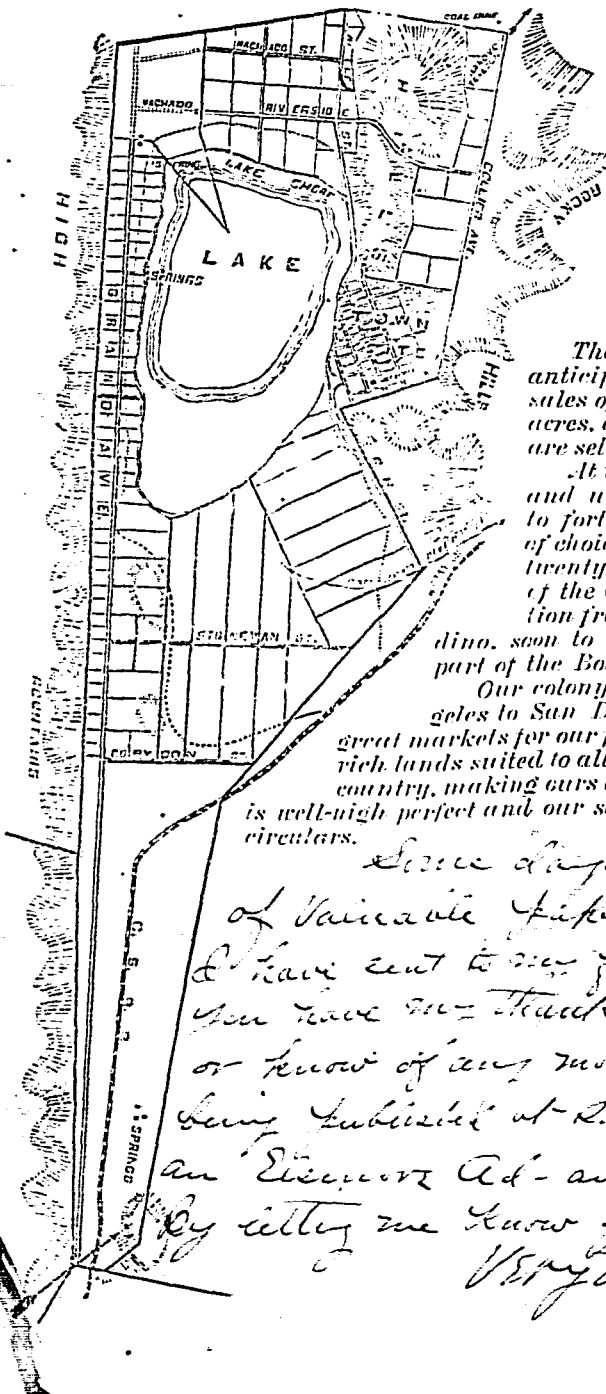 COAL MINE
MACHADO ST.
MACHADO
RIVERSIDE
ST.
COLLIER AVE.
ROCKY
HILLS
LAKE SHORE
LAKE
SPRINGS
TOWN
HIGH
GRAND AVE.
MOUNTAINS
CORYDON ST.
C. S. R. R.
SPRINGS
The
anticip
sales o
acres, 
are sel
At
and u
to fort
of choic
twenty
of the
tion fr
dino, soon to
part of the Bo
Our colony
geles to San D
great markets for our
rich lands suited to all
country, making ours
is well-nigh perfect and our s
circulars.
Some days
of Valuable
I have sent to my
you have my thank
or know of any mo
being published at R.
an Elsinore Ad - an
by letting me know
Very